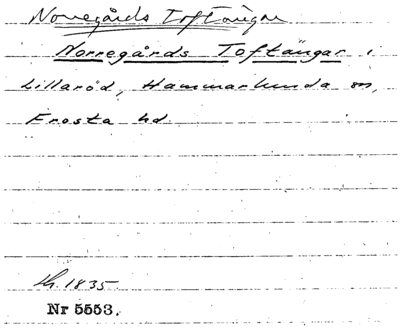 Norregårds Toftängar
Norregårds Toftängar i
Lillaröd, Hammarlunda sn,
Frosta hd
Lh. 1835
Nr 5553.